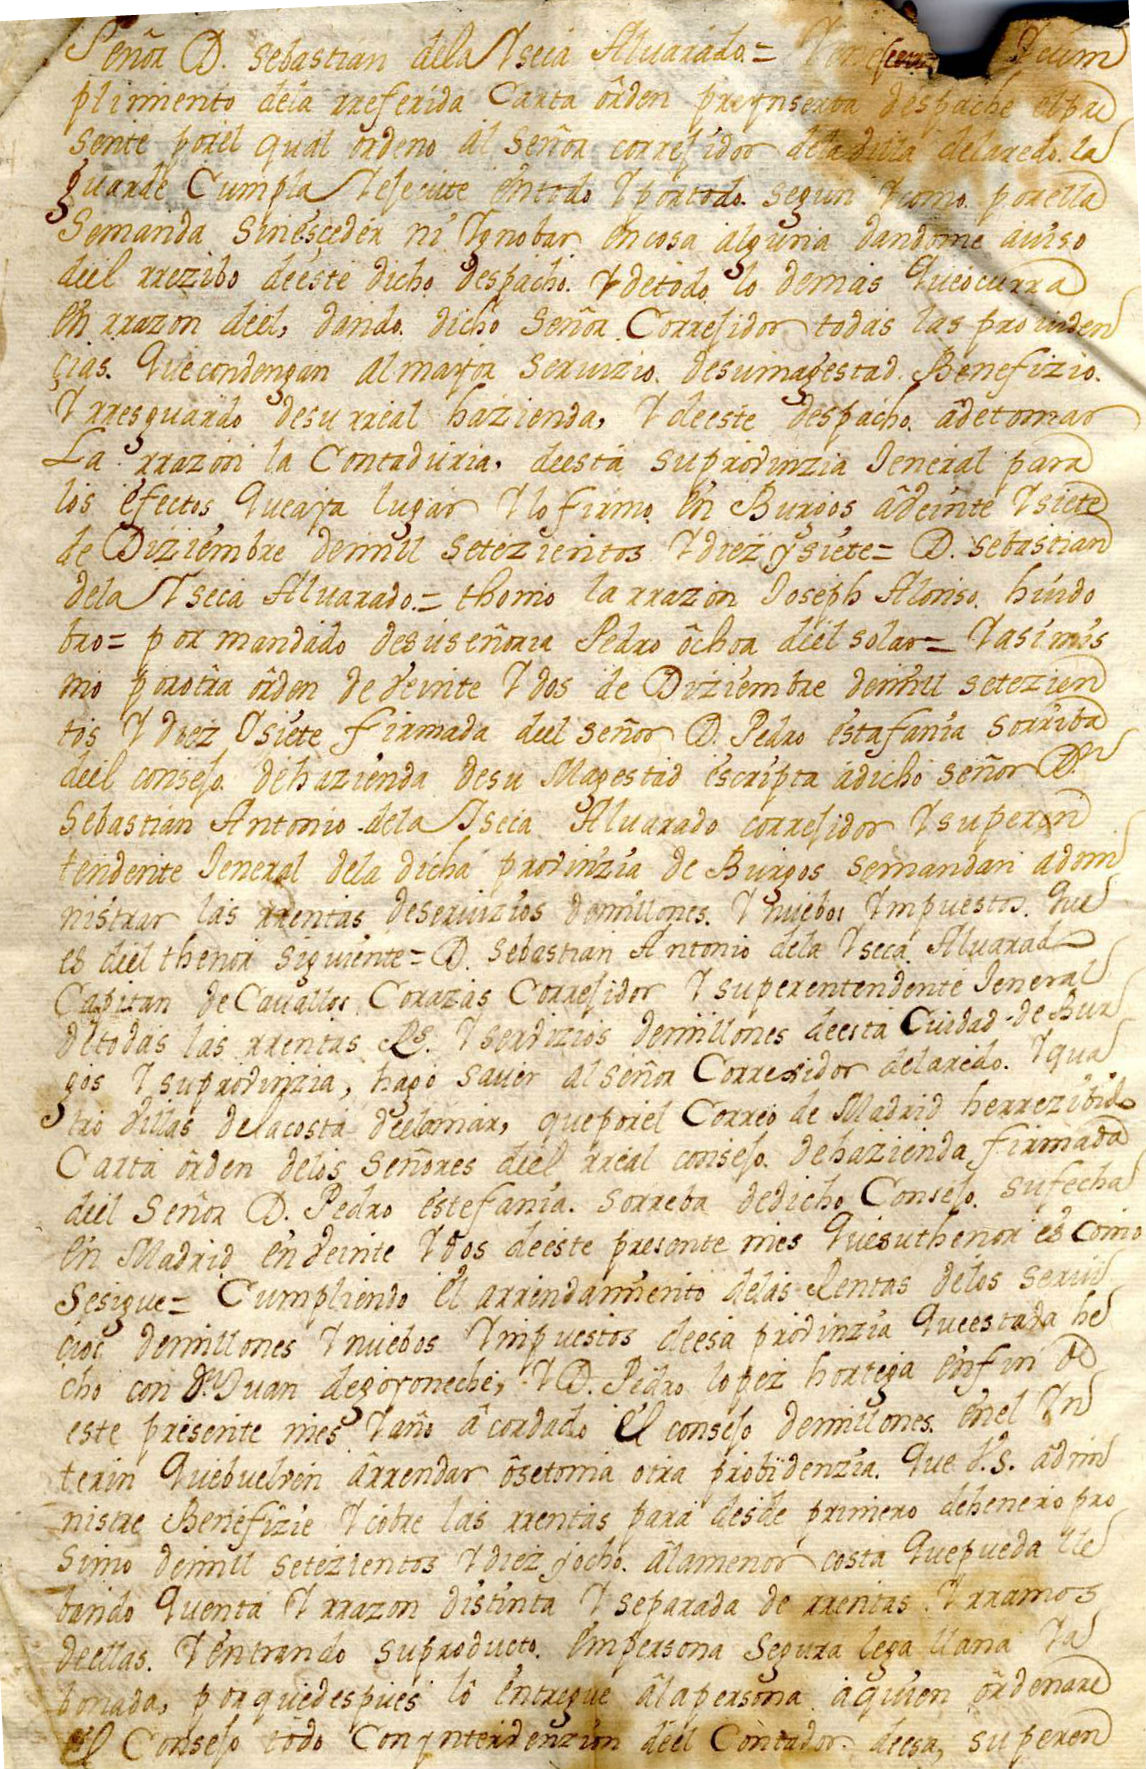 Señor D. Sebastian dela Yseca Alvarado = Y en Ycum
plimiento dela rreferida Carta orden preynserta despache elpre
sente porel qual ordeno al señor corresidor dela Villa delaredo. la
guarde Cumpla Yesecute entodo Yportodo. segun Ycomo. porella
Semanda sinesceder ni Ynobar encosa alguna dandome aviso
deel rrezibo deeste dicho despacho. Y detodo lo demas Queocurra
en rrazon deel, dando dicho señor Corresidor todas las providen
çias. Queconvengan almayor servizio. desumagestad. Benefizio.
Yrresguardo desu rreal hazienda, Y deeste despacho. adetomar
La rrazon la Contaduria, deesta suprovinzia Jeneral para
los efectos Queaya lugar Ylo firmo En Burgos aveinte Ysiete
de Diziembre demill setezientos Ydiez ysiete = D. sebastian
dela Yseca Alvarado. = thomo la rrazon Joseph Alonso. huido
bro = por mandado desuseñoria Pedro ochoa deel solar = Yasimis
mo porotra orden de veinte Ydos de Diziembre demill setezien
tos Y diez Ysiete firmada deel señor D. Pedro estafania sorriba
deel conseso. dehazienda desu Magestad escripta adicho señor Dn
Sebastian Antonio dela Yseca Alvarado corresidor Ysuperin
tendente Jeneral dela dicha provinzia de Burgos semandan admi
nistrar las rrentas deservizios demillones. Y nuebos Ympuestos. Que
es deel thenor siguiente = D. sebastian Antonio dela Yseca Alvarado
Capitan de Cavallos Corazas Corresidor Y superentendente Jeneral
detodas las rrentas Rs. Y servizios demillones deesta Ciudad de Bur
gos Y suprovinzia, hago saver al señor Corresidor delaredo. Y qua
tro villas delacosta deelamar, queporel Correo de Madrid herrezibido
Carta orden delos señores deel rreal conseso. dehazienda firmada
deel señor D. Pedro estefania. sorreba dedicho Conseso. sufecha
en Madrid en veinte Ydos deeste presente mes Quesuthenor es como
Sesigue = Cumpliendo el arrendamiento delas Rentas delos servi
çios demillones Ynuebos Ympuestos deesa provinzia Queestava he
cho con Dn Juan degoyoneche, Y D. Pedro lopez hortega enfin de
este presente mes Yaño acordado el conseso demillones. enel Yn
terin Quebuelven arrendar osetoma otra probidenzia. Que V.S. admi
nistre Benefizie Ycobre las rrentas para desde primero dehenero pro
simo demill setezientos Ydiez yocho. alamenor costa Quepueda lle
bando Quenta Y rrazon distinta Y separada de rrentas Yrramos
deellas. Y entrando suproducto. enpersona segura lega llana Ya
bonada, porquedespues lo entregue alapersona aquien ordenare
el Conseso todo Conyntervenzion deel Contador. deesa, superen